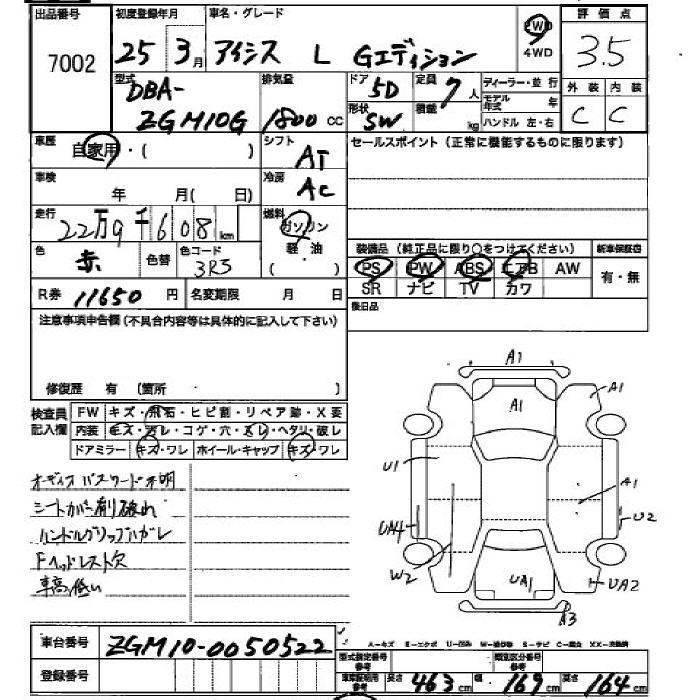 出品番号 初度登録年月 車名・グレード 2WD 評価点
7002 25年 3月 アイシス L Gエディション 4WD 3.5
型式 排気量 ドア 定員 ディーラー・並 行 外装 内装
DBA- 5D 7人 モデル年式 年
ZGM10G 1800cc 形状 SW 積載 kg ハンドル 左・右 C C
車歴 自家用・( ) シフト AT セールスポイント(正常に機能するものに限ります)
車検 年 月( 日) 冷房 AC
走行 22万9千608km 燃料 ガソリン
軽・油
色 赤 色替 色コード 3R3 ( ) 装備品(純正品に限り○をつけてください) 新車保証書
PS PW ABS エアB AW 有・無
R券 11650円 名変期限 月 日 SR ナビ TV カワ
後日品
注意事項申告欄(不具合内容等は具体的に記入して下さい)
修復歴 有 (箇所 )
検査員 FW キズ・飛石・ヒビ割・リペア跡・X要
記入欄 内装 キズ・汚レ・コゲ・穴・スレ・ヘタリ・破レ
ドアミラー キズ・ワレ ホイール・キャップ キズ・ワレ
オーディオパスワード不明
シートカバー剤破れ
ハンドルグリップハガレ
Fヘッドレスト欠
車高低い
A1
A1
A1
U1
A1
UA4
U2
W2
UA1
UA2
A3
車台番号 ZGM10-0050522
A-キズ E-エクボ U-凹み W-波ひめ S-サビ C-腐食 XX-交換済
登録番号
型式指定番号参考 類別区分番号参考
車庫証明用参考 長さ 463cm 幅 169cm 高さ 164cm